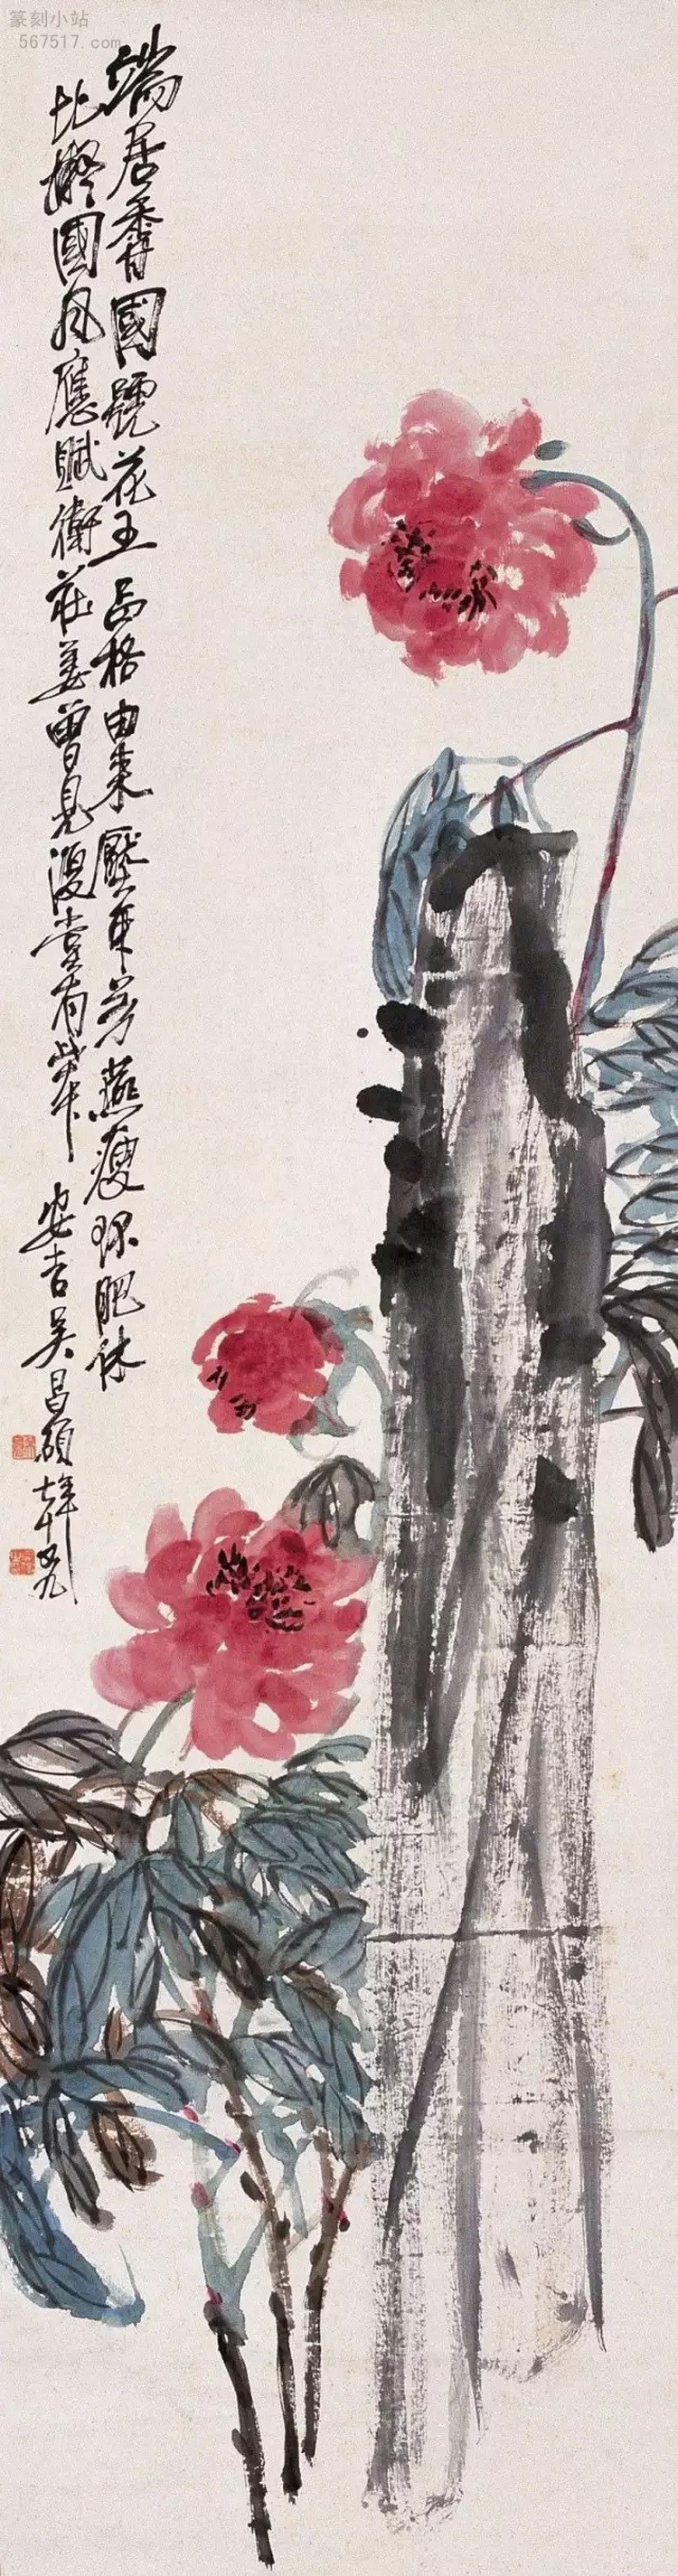 篆刻小站
567517.com
端居香國號花王品格由來壓眾芳燕瘦環肥休
比擬國風應賦衛莊姜曾見復堂有此本
安吉吳昌碩年七十九